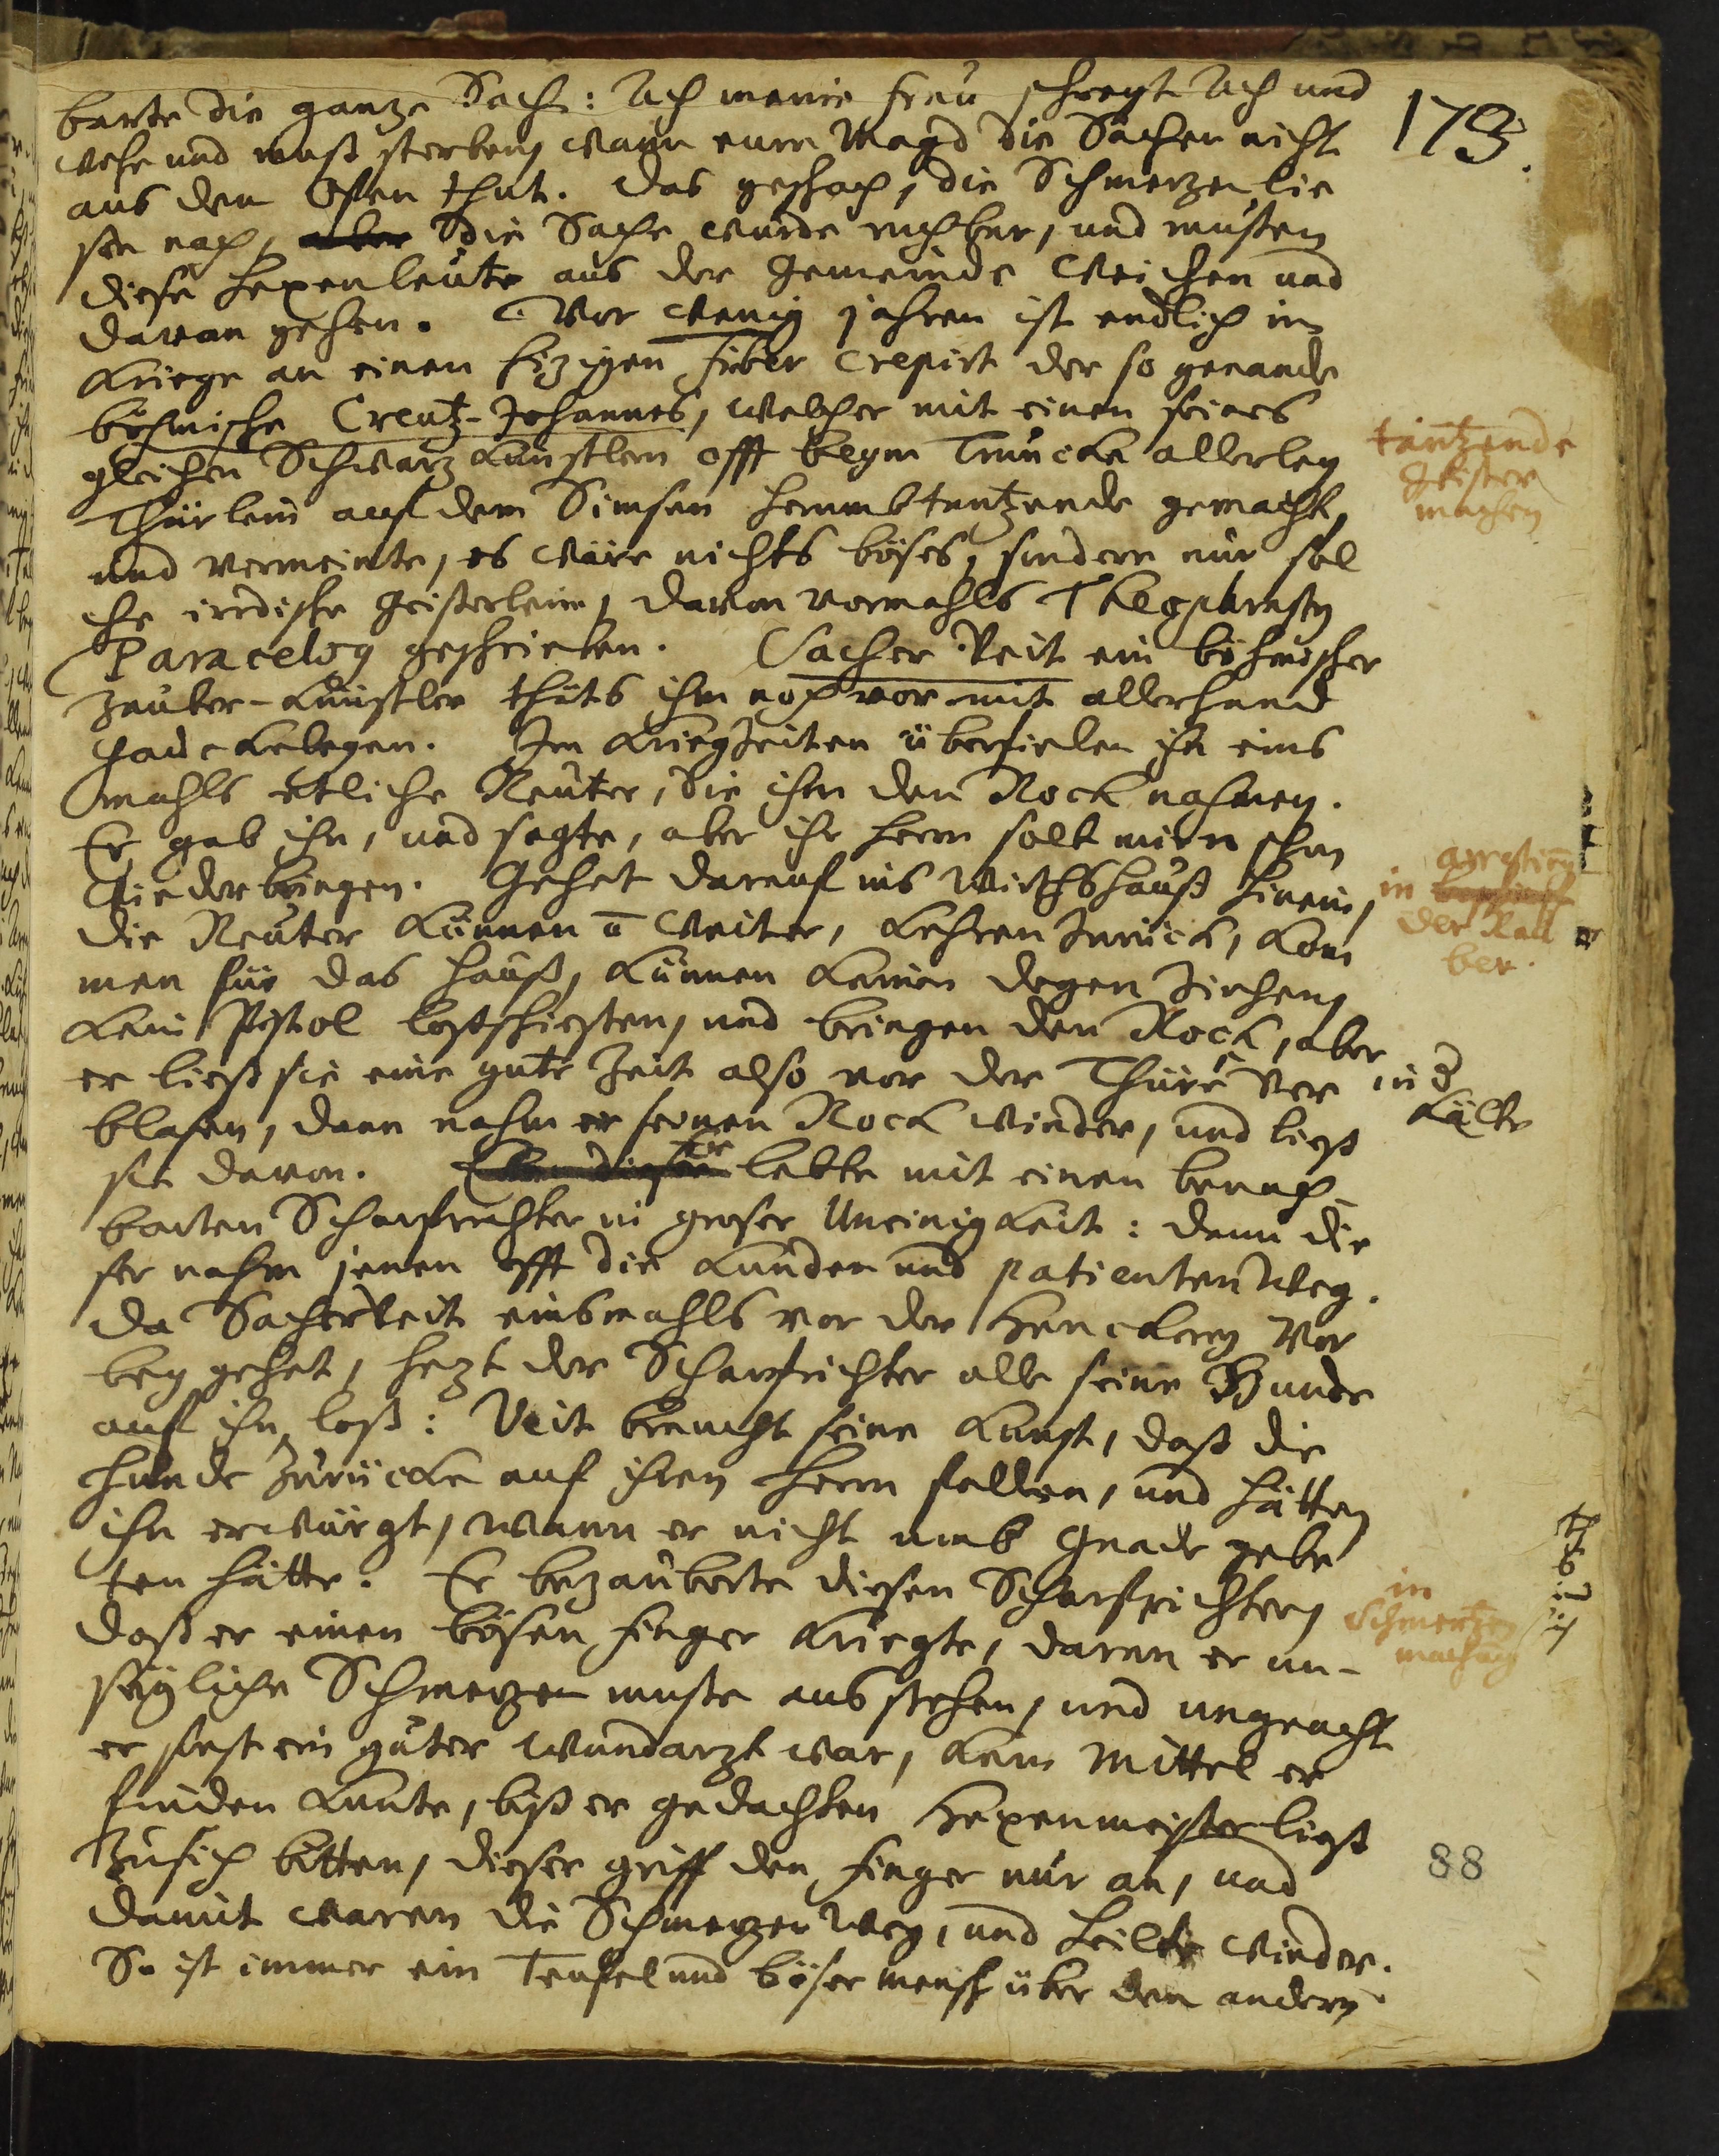 173.
barte die ganze Sach: Ach meine Frau schreyt Ach und
wehe und muß sterben wann eure Magd die Sachen nicht
aus dem Ofen thut. Das geschach, die Schmerzen lie
sen nach, aber die Sache wurde ruchbar, und musten
diese Hexenleute aus der Gemeinde weichen und
davon gehen. Vor wenig jahren ist endlich im
Kriege an einen hizigen fieber crepirt der so genande
böhmische Creutz-Johannes, welcher mit einen seines
gleichen Schwarzkünstlern offt beym Truncke allerley
Thierlein auf dem Simsen herumbtantzende gemacht,
und vermeinte, es wäre nichts böses, sondern nur sol
che irrdische Geisterlein, davon vormahls Theophrastus
Paracelsus geschrieben. Sacher Veit ein böhmischer
Zauber-Künstler thäts ihm noch vor mit allerhand
Gauckeleyen. Im Kriegzeiten überfielen ihn eins
mahls etliche Reuter, die ihm den Rock nahmen.
Er gab ihn, und sagte, aber ihr Herrn solt mirn schon
wiederbringen. Gehet darauf ins Wirthshauß hinein,
die Reuter können ū weiter, kehren zurück, kom
men für das Hauß, können keinen Degen ziehen,
kein Pistol loßschiesten, und bringen den Rock, aber
er ließ sie eine gute Zeit also vor der Thüre ver in d
Kälte
blasen, dann nahm er seinen Rock wieder, und ließ
sie davon. Eben dieser Er lebte mit einen benach-
barten Scharfrichter in groser Uneinigkeit: denn die
ser nahm jenen offt die Kunden und patienten weg.
Da Sacherveit einsmahls vor der Henckerey vor
bey gehet, hezt der Scharfrichter alle seine Hunde
auf ihn loß: Veit braucht seine Kunst, daß die
Hunde zurücke auf ihren Herrn fallen, und hätten
ihn erwürgt, wann er nicht umb Gnade gebe
ten hätte. Er bezauberte diesen Scharfrichtern
daß er einen bösen Finger kriegte, daran er un-
sägliche Schmerzen muste ausstehen, und ungeacht
er sonst ein guter Wundarzt war, kein Mittel er
finden kunte, biß er gedachten Hexenmeister ließ
zu sich bitten, dieser griff den Finger nur an, und
damit waren die Schmerzen weg, und heilte wieder.
So ist immer ein Teufel und böser mensch über den andern.
täntzende
Geister
machen
in arrestirung
der Räu
ber.
in
Schmertzen
machung
88